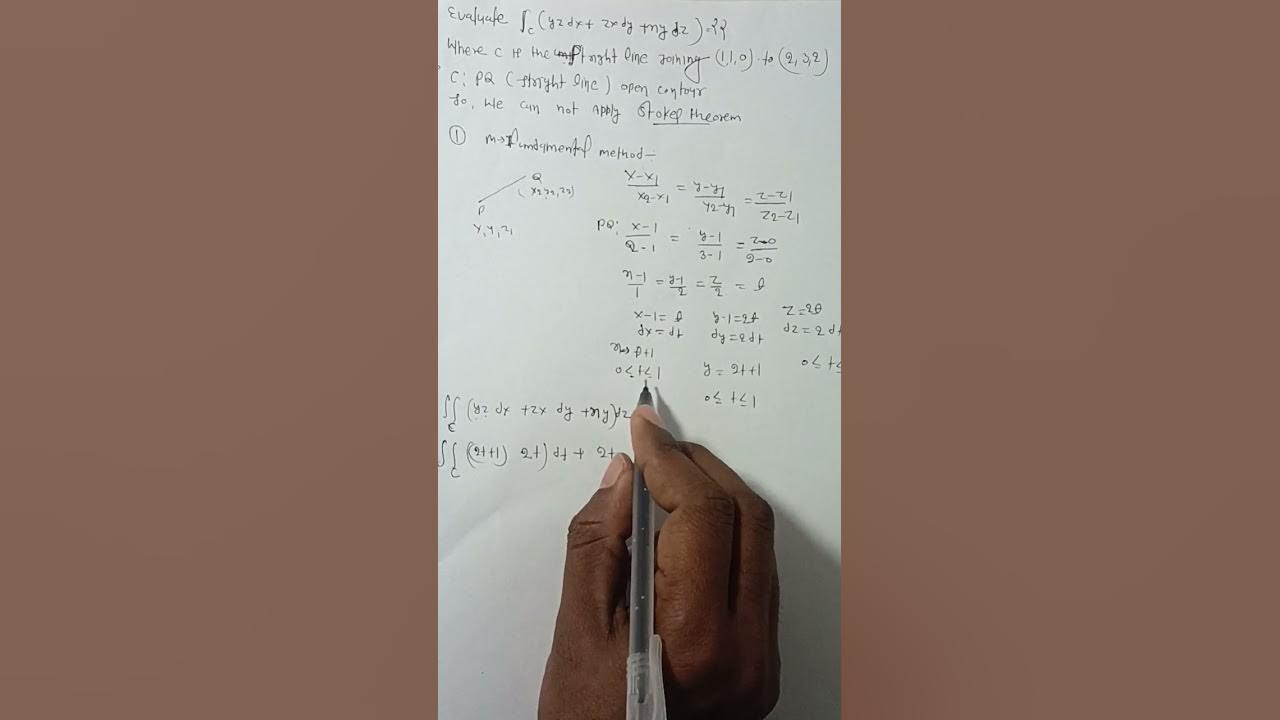 Evaluate ∫c (yz dx + zx dy + xy dz) = ??
Where C is the straight line joining (1,1,0) to (2,3,2)
C: PQ (straight line) open contour
So, we can not apply Stokes theorem
① fundamental method:-
Q
(x2 y2, z2)
P
x, y, z1
x-x1/x2-x1 = y-y1/y2-y1 = z-z1/z2-z1
PQ: x-1/2-1 = y-1/3-1 = z-0/2-0
x-1/1 = y-1/2 = z/2 = t
x-1 = t y-1 = 2t z = 2t
dx = dt dy = 2dt dz = 2 dt
1+t
0≤t≤1 y = 2t+1 0≤t≤
0≤t≤1
∫∫ (yz dx + zx dy + xy) dz
∫∫ (2t+1) 2t) dt + 2t